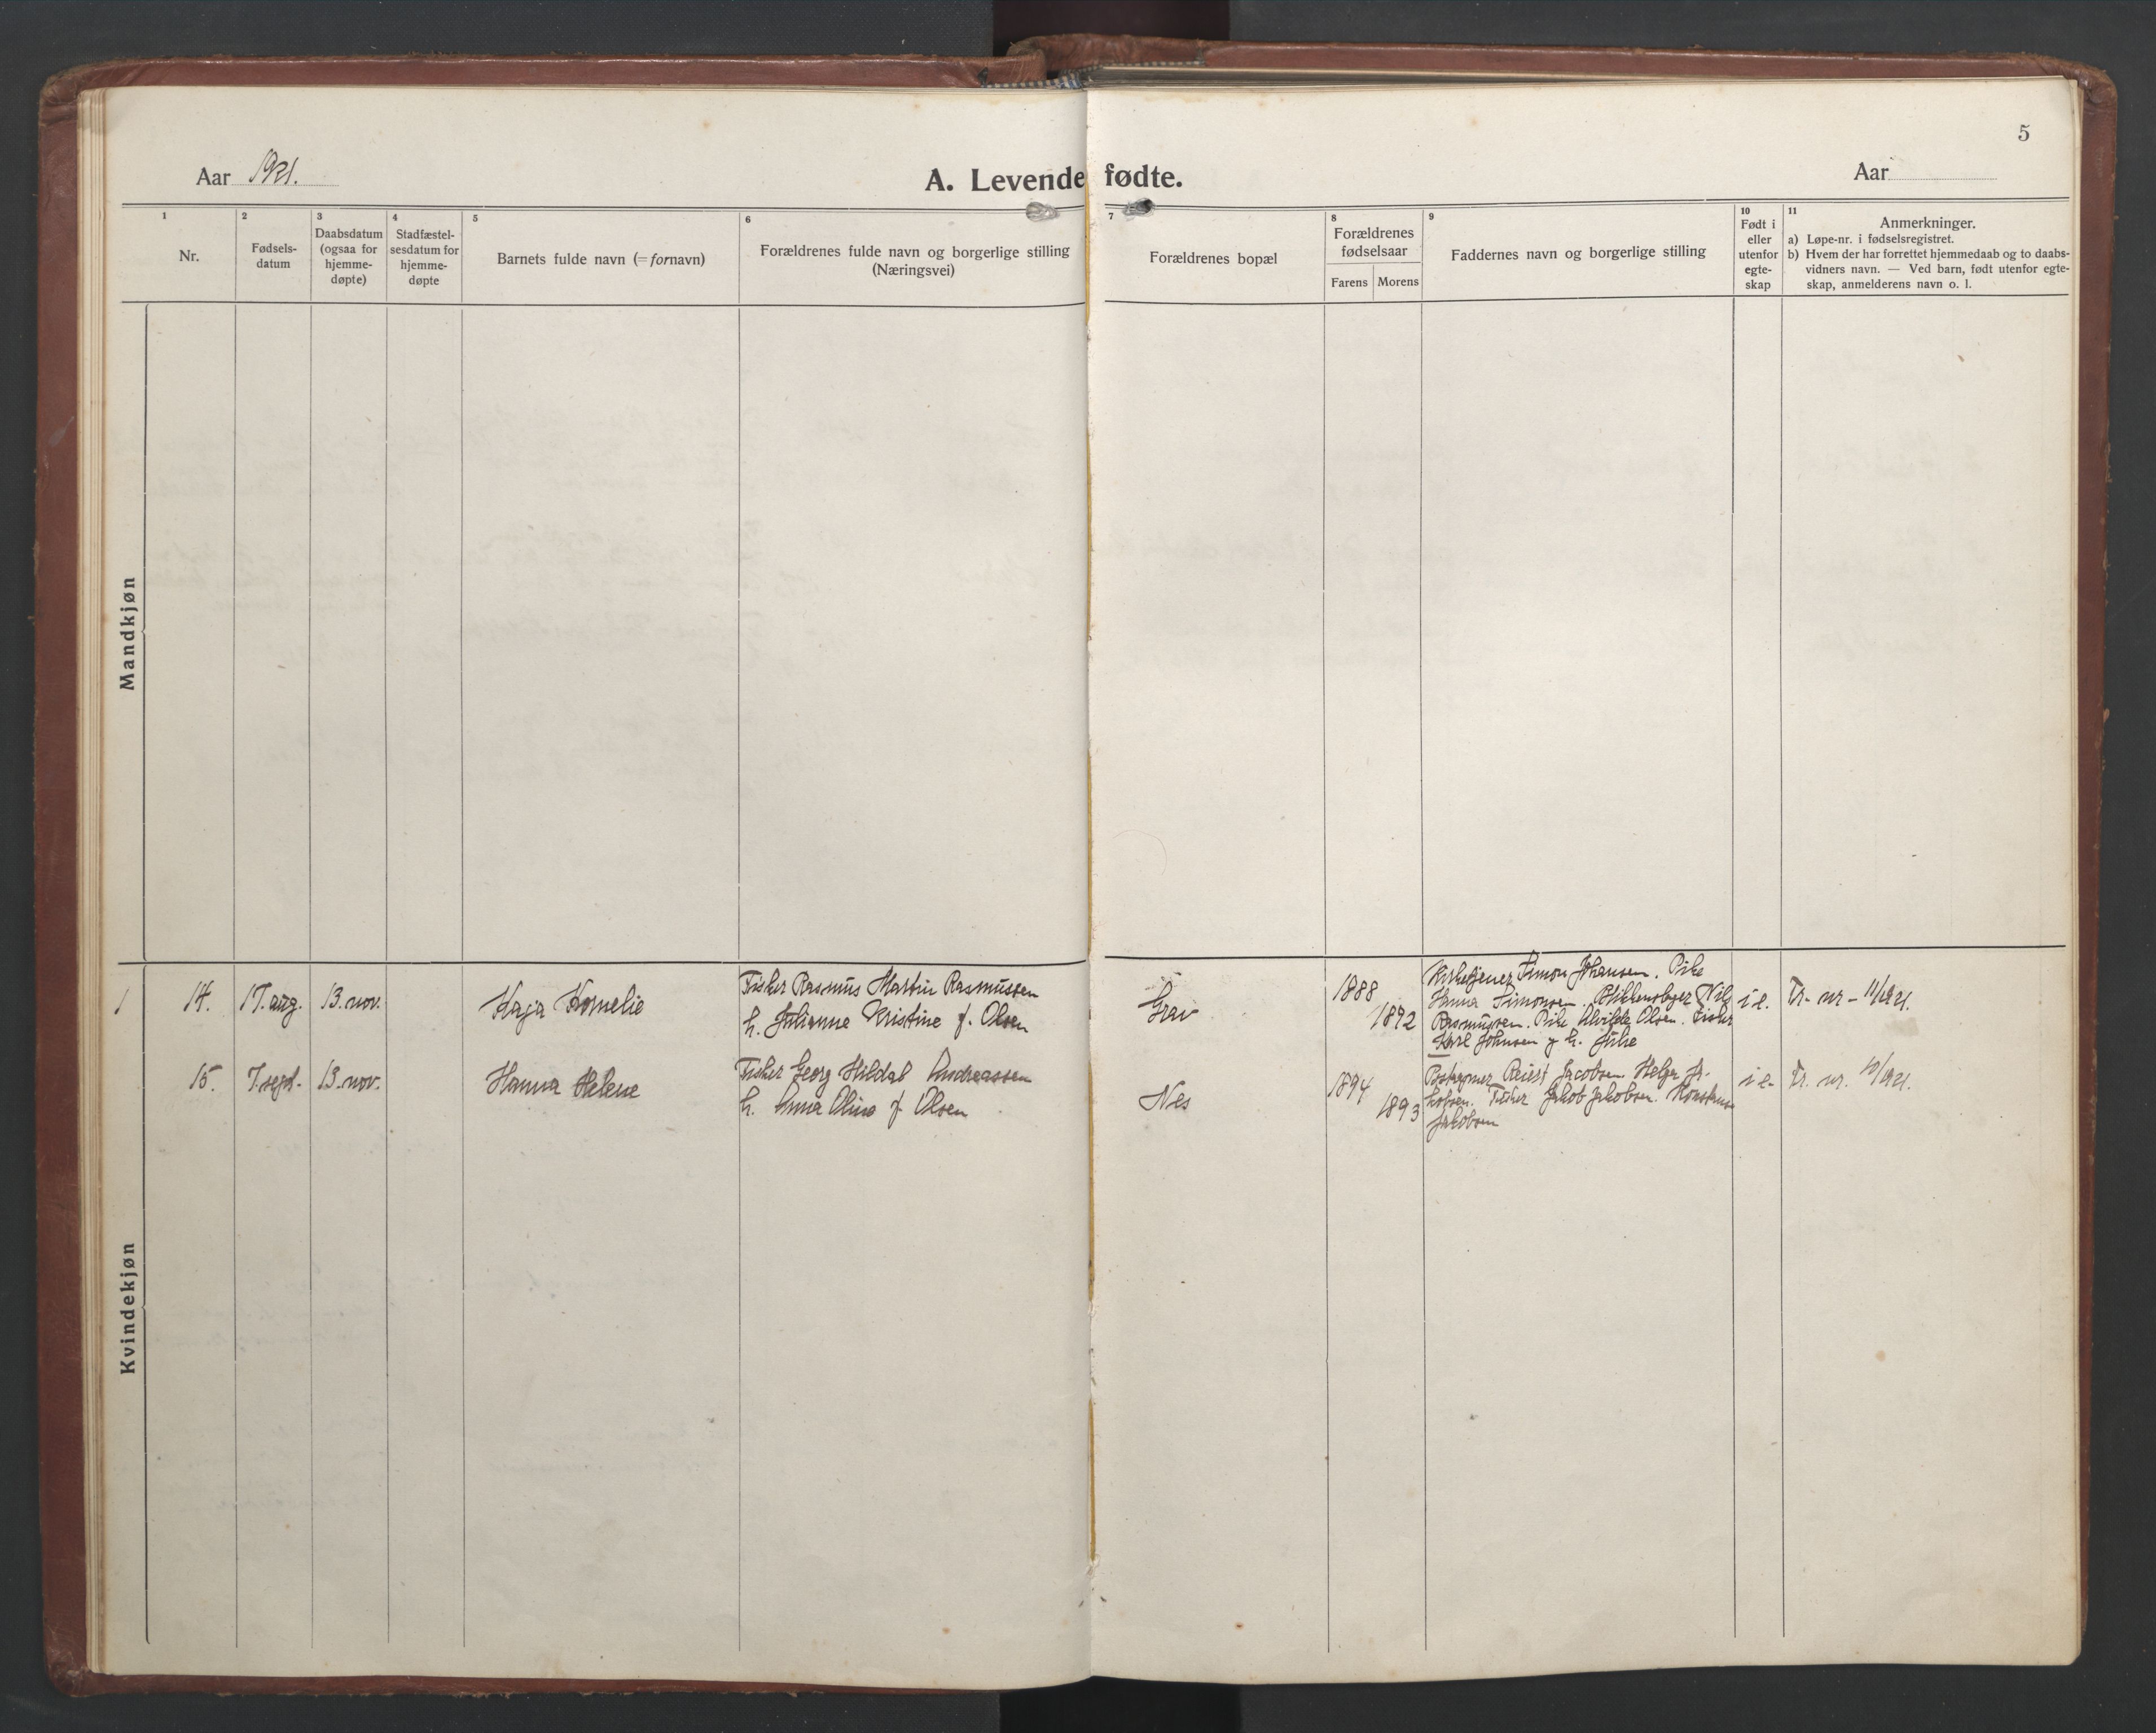 5
Aar 1921.
A. Levende fødte.
Aar
1
Nr.
2
Fødsels-
datum
3
Daabsdatum
(ogsaa for
hjemme-
døpte)
4
Stadfæstel-
sesdatum for
hjemme-
døpte
5
Barnets fulde navn (= fornavn)
6
Forældrenes fulde navn og borgerlige stilling
(Næringsvei)
7
Forældrenes bopæl
8
Forældrenes
fødselsaar
Farens Morens
9
Faddernes navn og borgerlige stilling
10
Født i
eller
utenfor
egte-
skap
11
Anmerkninger.
a) Løpe-nr. i fødselsregistret.
b) Hvem der har forrettet hjemmedaab og to daabs-
vidners navn. — Ved barn, født utenfor egte-
skap, anmelderens navn o. l.
Mandkjøn
Kvindekjøn
1
14.
17. aug.
13. nov.
Kaja Kornelie
Fisker Rasmus Martin Rasmussen
h. Julianne Kristine f. Olsen
Grav
1888
1892
Kirketjener Simon Johansen. Pike
Hanna Simonsen. Blikkenslager Nils
Rasmussen. Pike Alvilde Olsen. Fisker
Karl Johnsen og h. Julie
i e.
Tr. nr - 11/1921.
15.
7. sept.
13. nov.
Hanna Helene
Fisker Georg Hildal Andreassen
h. Anna Oline f. Olsen
Nes
1894
1893
Jacobsen Helga Ja-
kobsen. Fisker Jakob Jakobsen.
Jakobsen
i e.
Tr. nr. 10/1921.